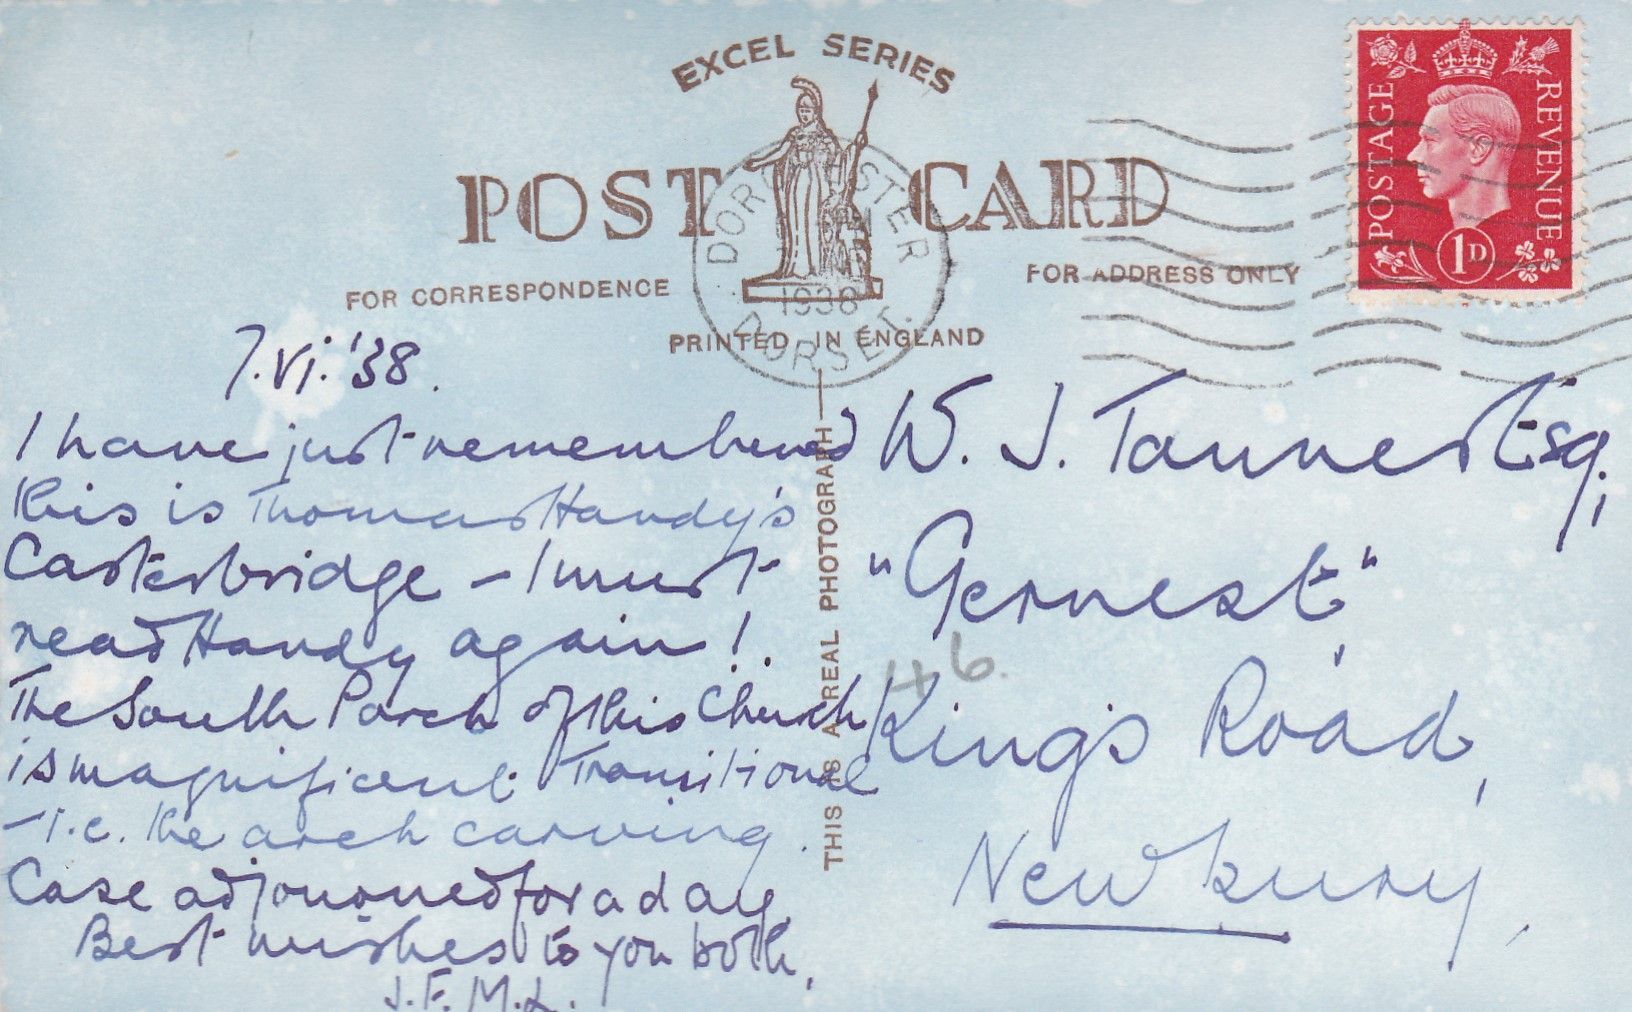 EXCEL SERIES
POST CARD
FOR CORRESPONDENCE
FOR ADDRESS ONLY
PRINTED IN ENGLAND
DORCHESTER
1938
DORSET.
POSTAGE
REVENUE
1D
THIS IS A REAL PHOTOGRAPH
7.VI.'38.
I have just remembered
this is Thomas Hardy's
Casterbridge – I must
read Hardy again!.
The South Porch of this Church
is magnificent Transitional
– i.e. the arch carving.
Case adjourned for a day.
Best wishes to you both,
J.F.M.L.
W. J. Tanner Esq.,
"Gernest",
46.
Kings Road,
Newbury,